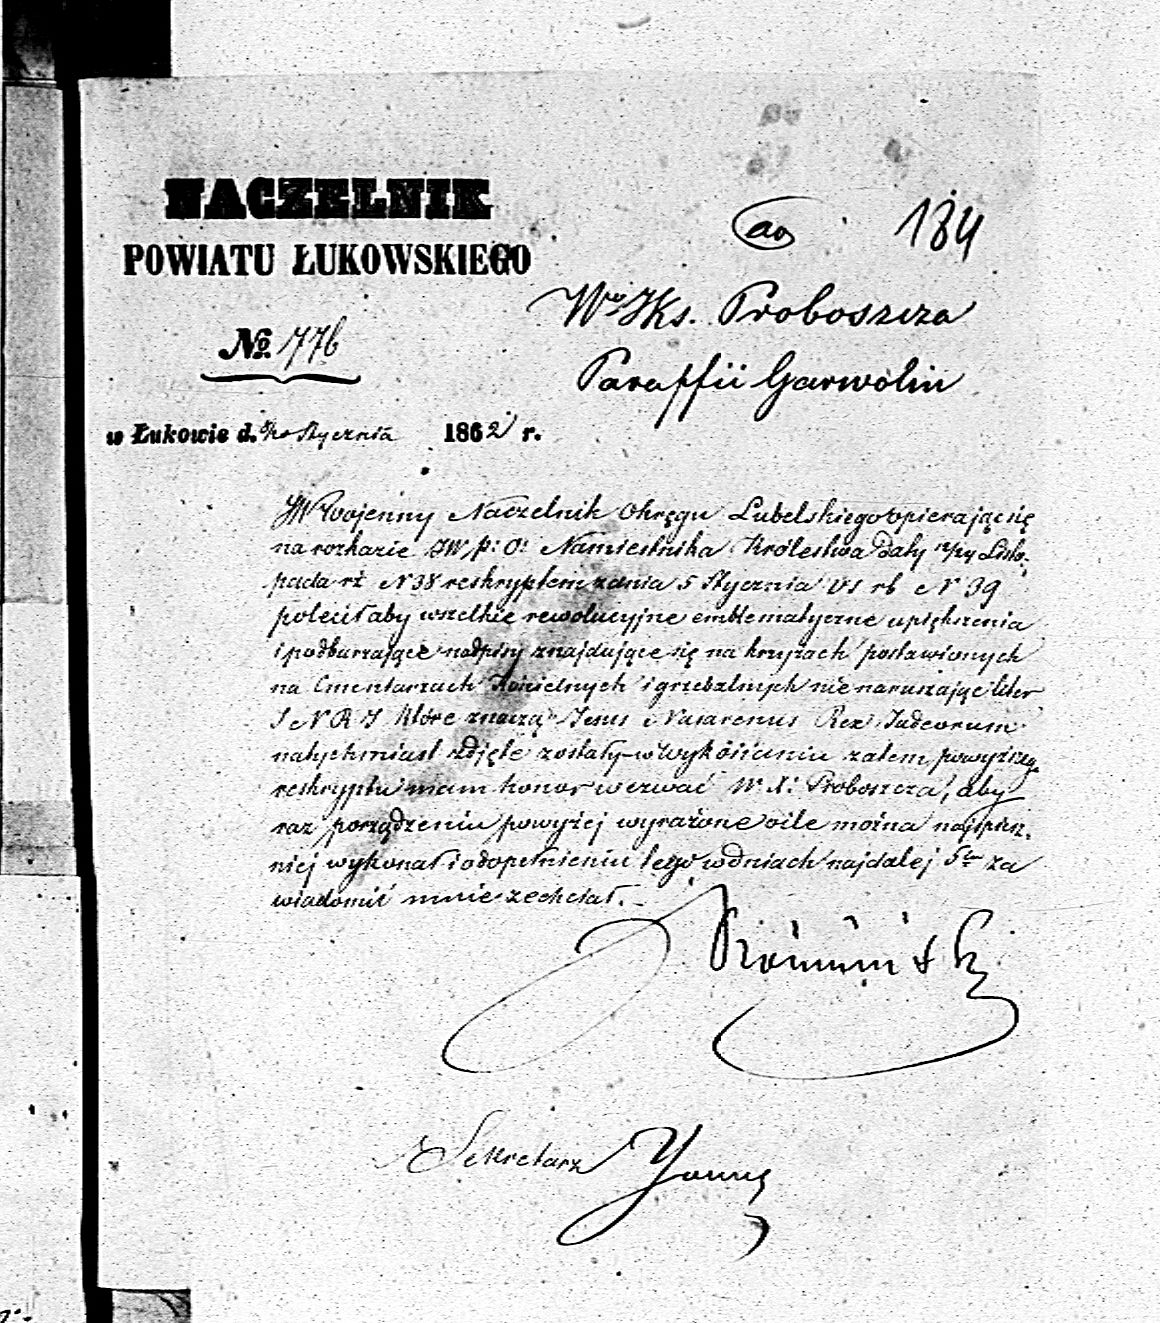 NACZELNIK
POWIATU ŁUKOWSKIEGO
184
No. 776
Wo JKs. Proboszcza
Paraffii Garwolin
w Łukowie d. Stycznia 1862 r.
JW Wojenny Naczelnik Okręgu Lubelskiego opierając się
na rozkazie JW p: O: Namiestnika Królestwa daty Listo-
pada rź N 38 reskryptem z dnia 5 Stycznia rb N 39
polecił aby wszelkie rewolucyjne emblematyczne upiększenia
i podburzające nadpisy znajdujące się na krzyżach postawionych
na Cmentarzach Kościelnych i grzebalnych nie naruszając liter
J N R J które znaczą Jesus Nasarenus Rex Judeorum
natychmiast zdjęte zostały – w wykonaniu zatem powyższego
reskryptu mam honor wezwać W. X: Proboszcza, aby
roz porządzeniu powyżej wyrażone o ile można najspiesz-
niej wykonał i o dopełnieniu tego w dniach najdalej 5ciu za
wiadomić mnie zechciał. –
Sekretarz